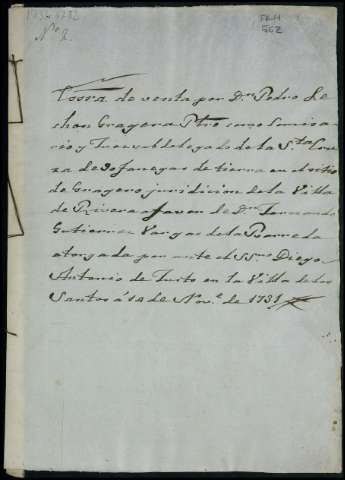 1731-1732
Nº 2.
FRM
562
Essra. de venta por Dn. Pedro Le
chon Gragera Pbro como Comisa
rio y Juez subdelegado de la Sta. Cruza
da de 30 fanegas de tierra en el sitio
de Gragero jurisdicion de la Villa
de Rivera á favor de Dn. Fernando
Gutierrez Vargas de la Barreda
otorgada por ante el Ssno. Diego
Antonio de Tuito en la Villa de los
Santos á 14 de Nove. de 1731